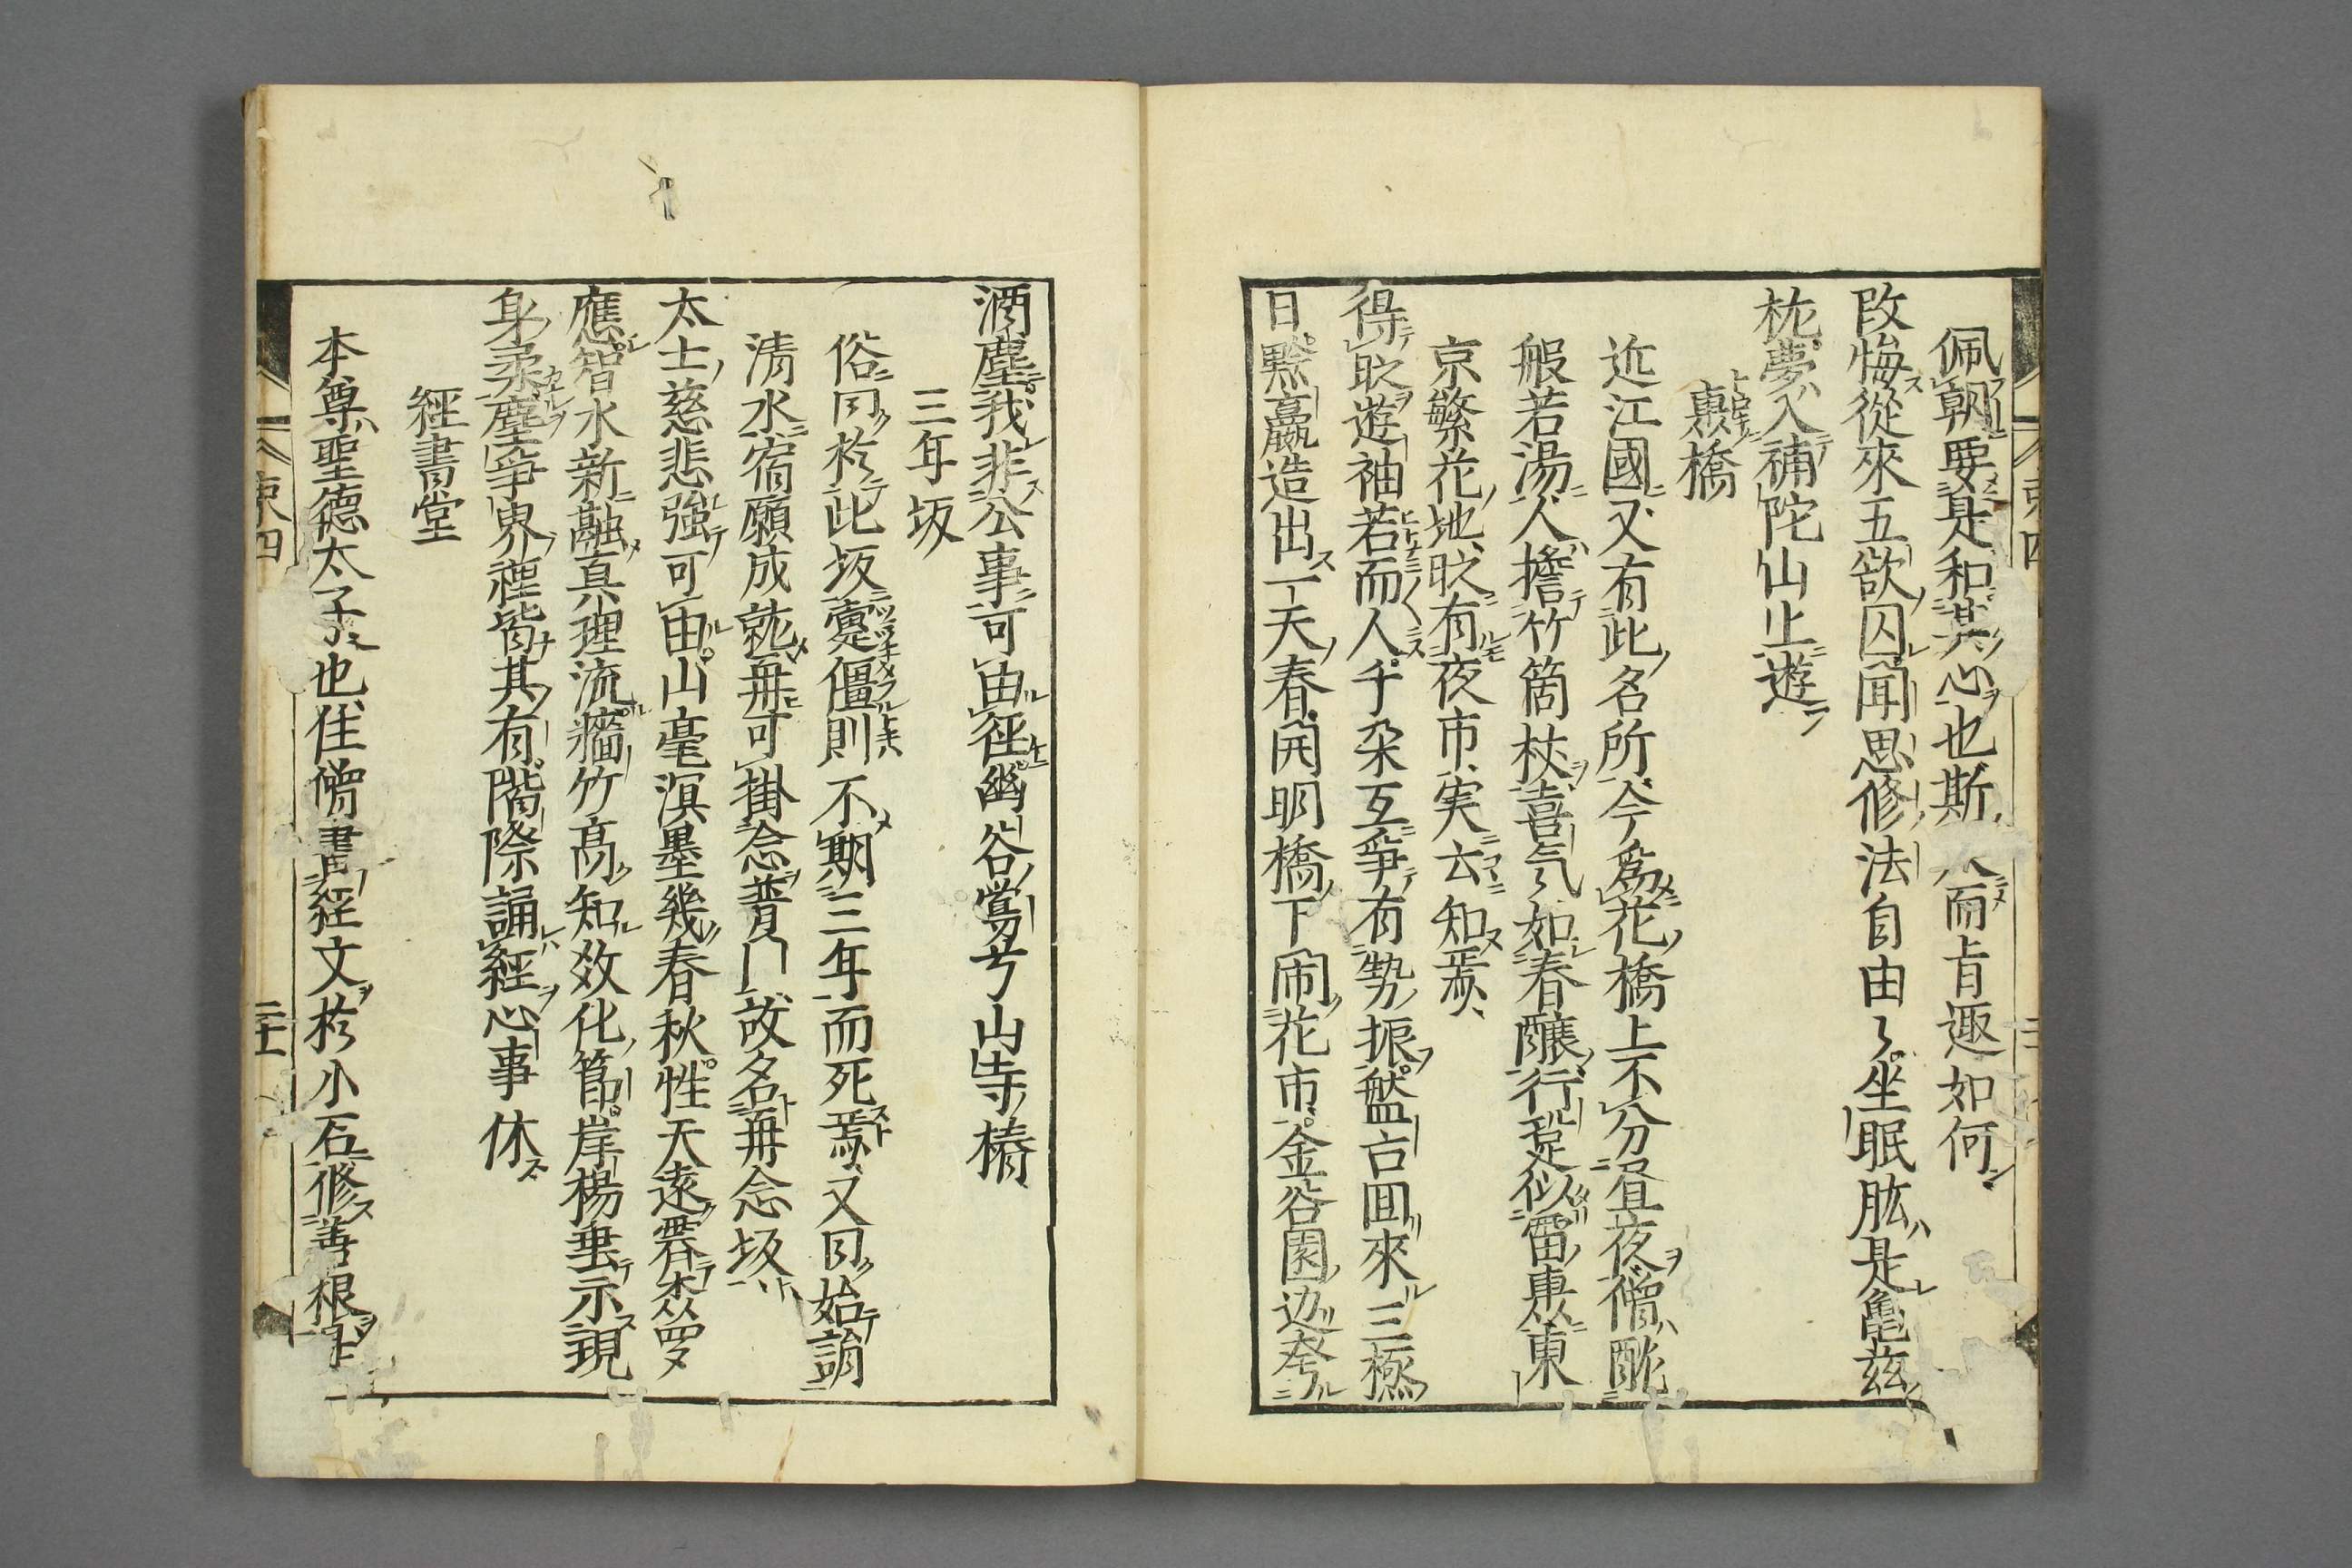 佩朝要是和其心也斯人而旨趣如何
改悔從來五欲囚聞思修法自由〻坐眠肱是亀茲
枕夢入補陀山上遊
轟橋
近江國又有此名所今爲花橋上不分昼夜僧酕
般若湯人擔竹筒杖喜気〻如春醸行跫似雷車東
京繁花地昿有夜市実云知焉
得昿遊袖若而人千朶互爭有勢振盤古囬來三極
日黥嬴造出一天春開明橋下閙花市金谷園辺夸
酒塵我非公事可由径幽谷鴬兮山寺椿
三年坂
俗曰於此坂躓僵則不期三年而死焉又曰始詣
清水宿願成就再可掛念普門故名再念坂
太士慈悲強可由山毫溟墨幾春秋性天遠霽森羅
應智水新融真理流墻竹高知效化筇岸楊垂示現
身柔塵爭界裡皆其有階際誦經心事休
經書堂
本尊聖德太子也住僧書經文於小石修善根
東四
二十一